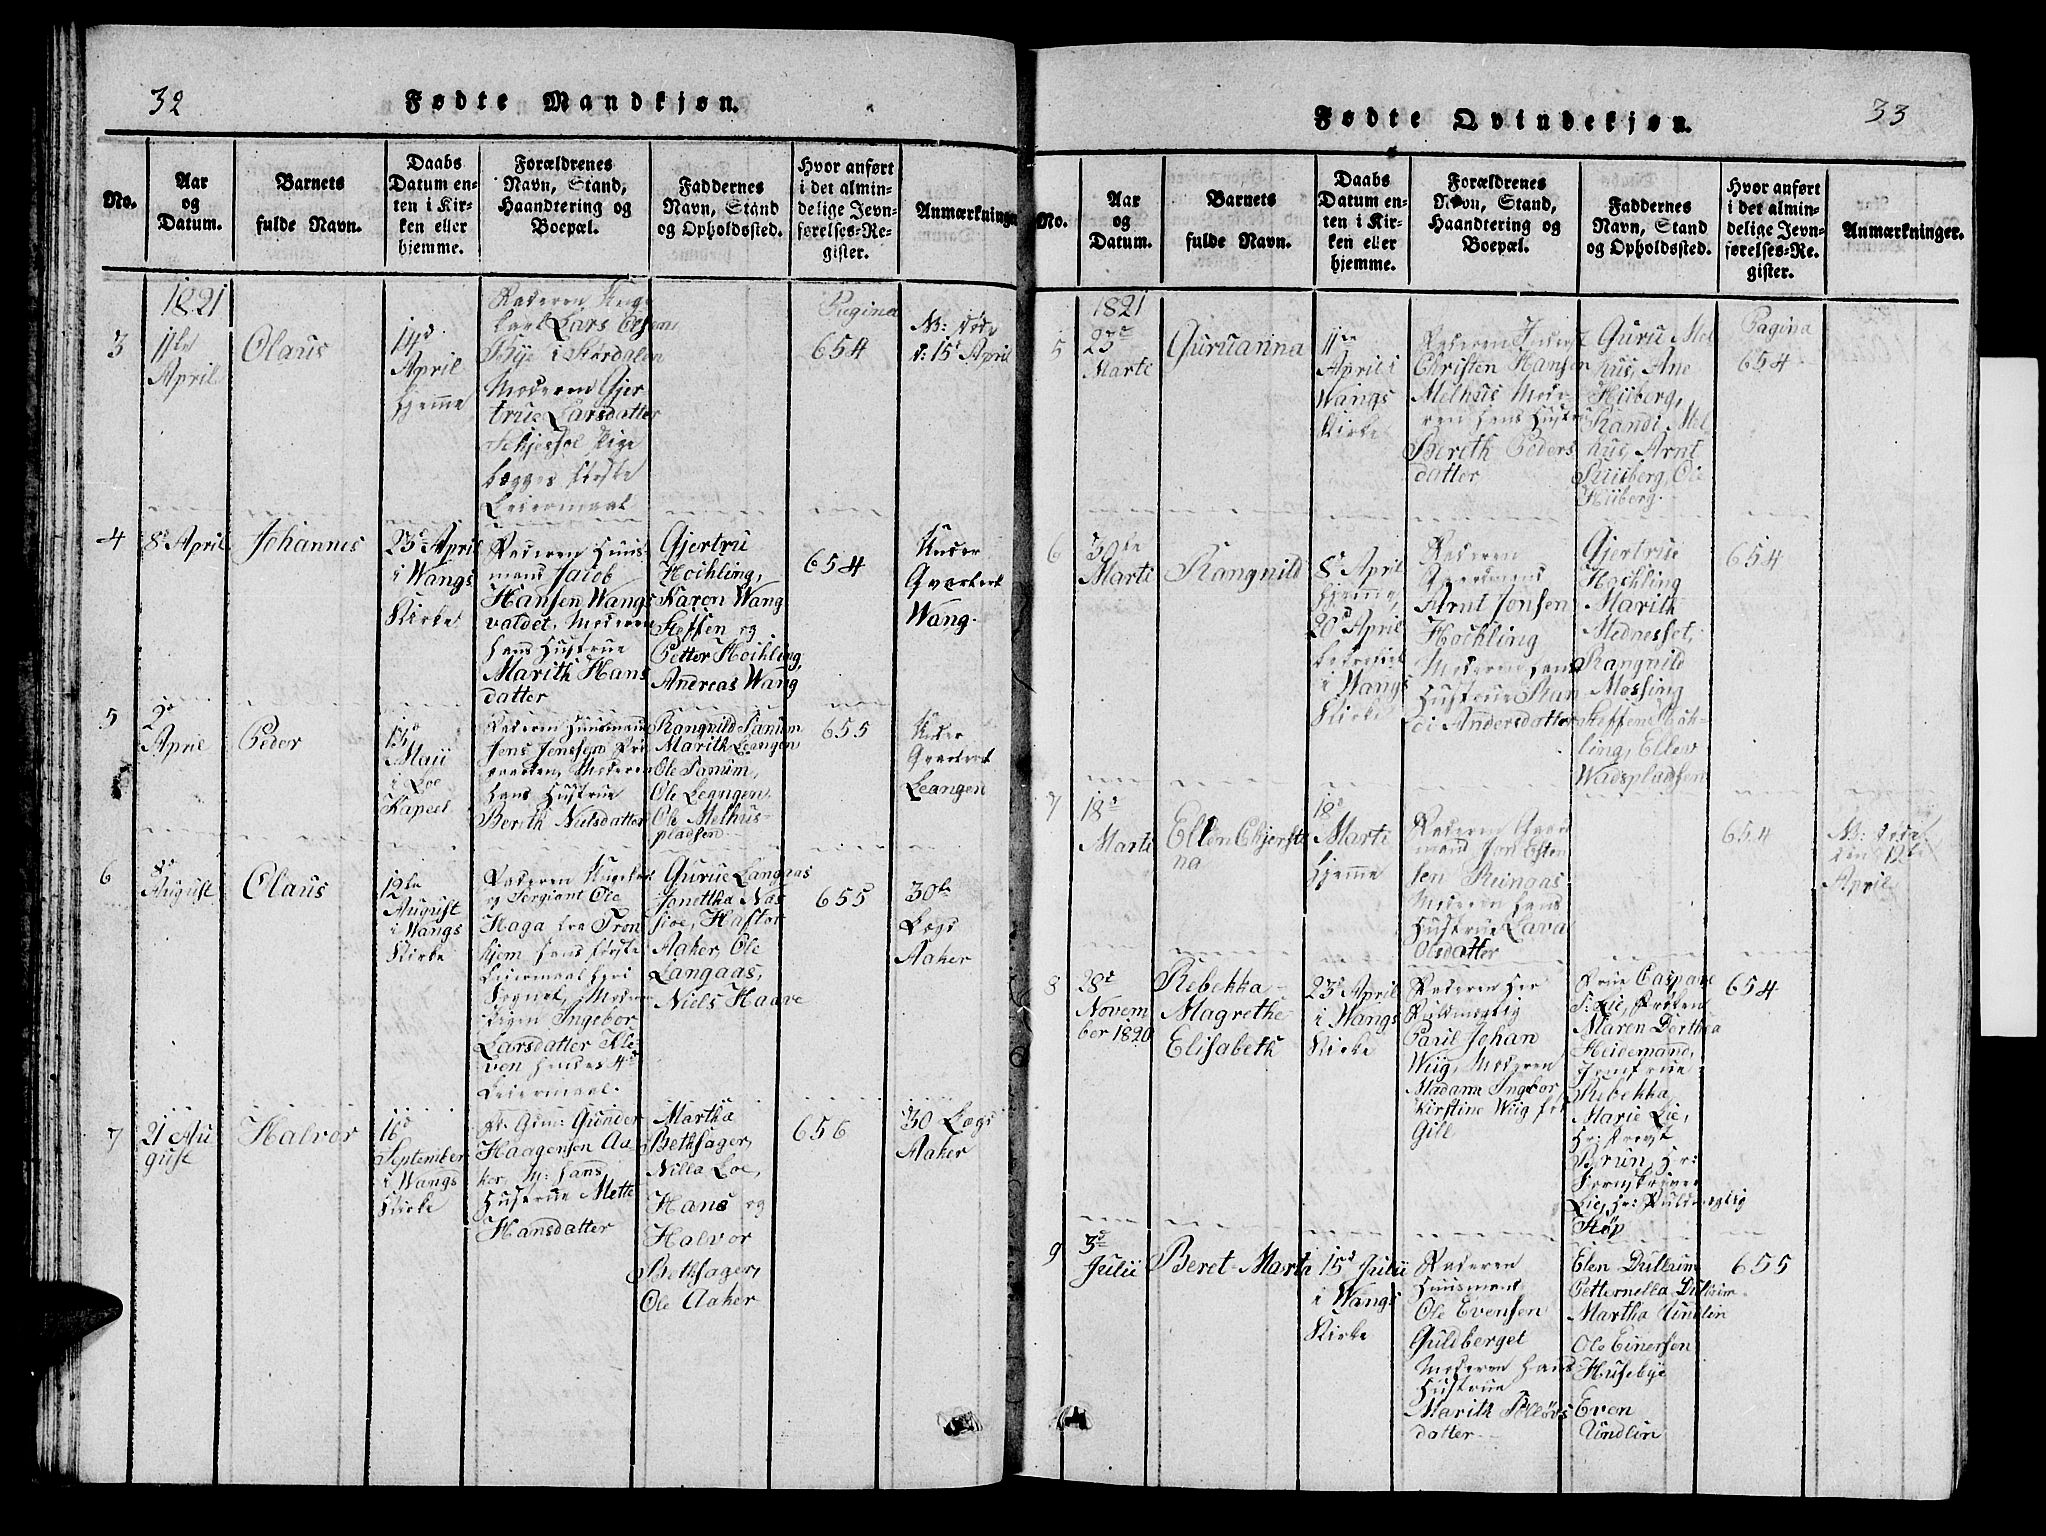 32
Fødte Mandkjøn.
No.
Aar
og
Datum.
Barnets
fulde Navn.
Daabs
Datum en-
ten i Kir-
ken eller
hjemme.
Forældrenes
Navn, Stand,
Haandtering og
Boepæl.
Faddernes
Navn, Stand
og Opholdssted.
Hvor anført
i det almin-
delige Jevn-
førelses-Re-
gister.
Anmærkninger
1821
3
11te
April
Olaus
14d
April
hjemme
Faderen Unge
Karl Lars Olsen
Bye i Størdalen
Moderen Gjer
true Larsdatter
Pige
begges første
Leiermaal
Pagina
654
NB: døde
d: 15d April
4
8d April
Johannes
23d April
i Wangs
Kirke
Faderen Huus-
mand Jacob
Hansen Wangs
valdet, Moderen
hans Hustrue
Marith Hans
datter
Gjertru
Hoihling,
Karen Wang
Steffen og
Petter Hoihling,
Andreas Wang
654
Under
Qvarteret
Wang.
5
2d
April
Peder
13d
Maii
i Loe
Kapeel
Faderen Huusmand
Jens Jenssen
Moderen
hans Hustrue
Berith Nielsdatter
Rangnild Sanum
Marith Leangen
Ole Sanum,
Ole Leangen
Ole Melhus-
pladsen
655
Under
Qvarteret
Leangen
6
5d
August
Olaus
12te
August
i Wangs
Kirke
Faderen
og Sergiant Ole
Haga fra Tron
hjem hans første
Leiermaal her i
Sognet, Moder
Pigen Ingebor
Larsdatter Kle-
ven hendes 4d
Leiermaal.
Gurue Langaas
Jonettha Nos
sloe, Haftor
Aaker, Ole
Langaas,
Niels Haave
655
30te
Lægd
Aaker
7
21 Au
gust
Halvor
16d
September
i Wangs
Kirke
F: Gm: Gunder
Haagensen Aa-
ker, M: hans
Hustrue Mette
Hansdatter
Martha
Bethsager,
Nilla Loe,
Hans og
Halvor
Bethsager,
Ole Aaker
656
30 Lægd
Aaker
33
Fødte Qvindekjøn.
No.
Aar
og
Datum.
Barnets
fulde Navn.
Daabs
Datum en-
ten i Kir-
ken eller
hjemme.
Forældrenes
Navn, Stand,
Haandtering og
Boepæl.
Faddernes
Navn, Stand
og Opholdssted.
Hvor anført
i det almin-
delige Jevn-
førelses-Re-
gister.
Anmærkninger.
1821
5
23d
Marti
Guruanna
11te
April i
Wangs
Kirke
Faderen
Christen Hansen
Melhus Mode-
ren hans Hustru
Bereth Peders
datter
Guru Mel
hus, Ane
Hiiberg,
Randi Mel
hus, Arnt
Hiiberg, Ole
Hiiberg.
Pagina
654
6
30te
Marti
Rangnild
8d April
hjemme,
20d April
i Wangs
Kirke
Faderen
Gaardmand
Arnt Jonsen
Hoehling
Moderen hans
Hustrue Ran
di Andersdatter
Gjertrue
Hoehling
Marith
Mednesset,
Rangnild
Mossing
Steffen Hoih-
ling, Ellen
Wadspladsen
654
7
18d
Marti
Ellen Chjersti
na
18d
Marti
hjemme
Faderen Gaard
mand Jon Esten
sen Reingaas
Moderen hans
Hustrue Lava
Olsdatter
654
NB: døde
den 12te
April
8
28d
Novem
ber 1820
Rebekka
Magrethe
Elisabeth
23d April
i Wangs
Kirke
Faderen Her
Fuldmegtig
Paul Johan
Wiig, Moderen
Madame Ingebor
Kirstine Wiig født
Gill
Frue Caspare
S: Lie, Frøken
Maren Dorthea
Heidemand,
Jomfrue
Rebekka
Marie Lie,
Hr: Provst
Brun, Hr:
Sorenskriver
Lie, Hr: Fuldmegtig
Støp
654
9
3d
Julii
Beret-Marta
15d Julii
i Wangs
Kirke
Faderen
Huusmand
Ole Evensen
Guldberget
Moderen hans
Hustrue
Marith Tollevs
datter
Elen Dullum
Petternelka Dullum
Martha Undlin
Ole Einersen
Husebye
Even
Undlin
655